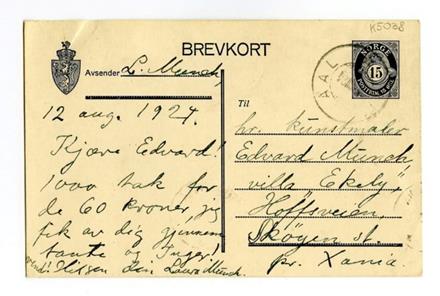 K5038
BREVKORT
NORGE
15
Avsender L. Munch,
AAL
Til
12 aug. 1924.
Kjære Edvard!
1000 tak for
de 60 kroner, jeg
fik av dig gjennem
tante og Inger!
Hilsen din Laura Munch.
hr. kunstmaler
Edvard Munch,
villa "Ekely",
Hoffsveien,
Skøyen st.
pr. Xania.